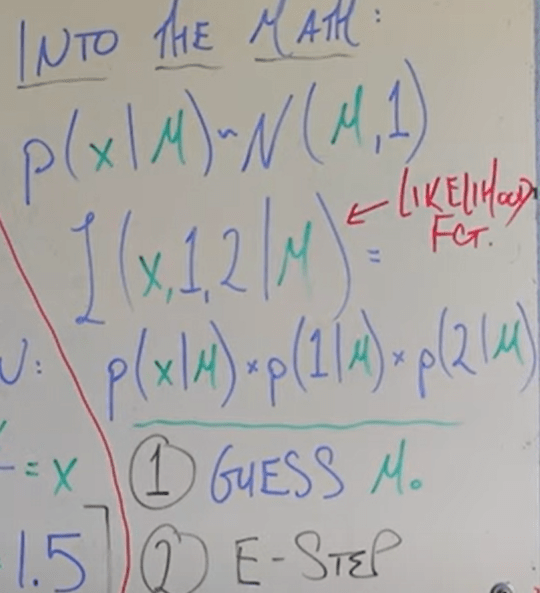 INTO THE MATH:
p(x|μ) ~ N(μ,1)
L(x,1,2|μ) =
← LIKELIHOOD
FCT.
p(x|μ) × p(1|μ) × p(2|μ)
= x
1.5]
① GUESS μ₀
② E-STEP